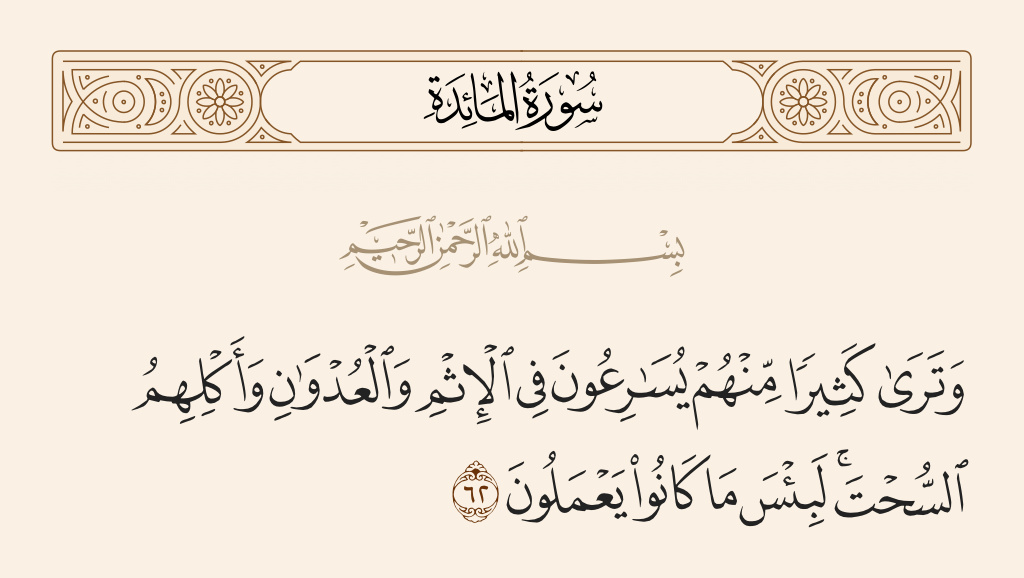 سُورَةُ المَائِدَةِ
بِسْمِ ٱللَّهِ ٱلرَّحْمَٰنِ ٱلرَّحِيمِ
وَتَرَىٰ كَثِيرًا مِّنْهُمْ يُسَٰرِعُونَ فِى ٱلْإِثْمِ وَٱلْعُدْوَٰنِ وَأَكْلِهِمُ
ٱلسُّحْتَ ۚ لَبِئْسَ مَا كَانُوا۟ يَعْمَلُونَ ٦٢